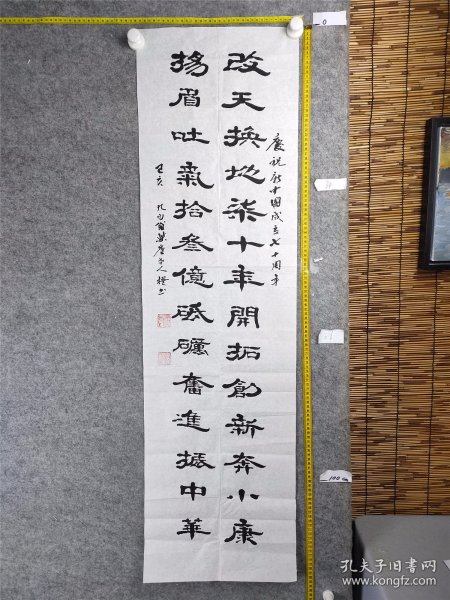 慶祝新中國成立七十周年
改天換地柒十年開拓創新奔小康
揚眉吐氣拾叁億砥礪奮進振中華
己亥
書
0
100cm
孔夫子旧书网
www.kongfz.com